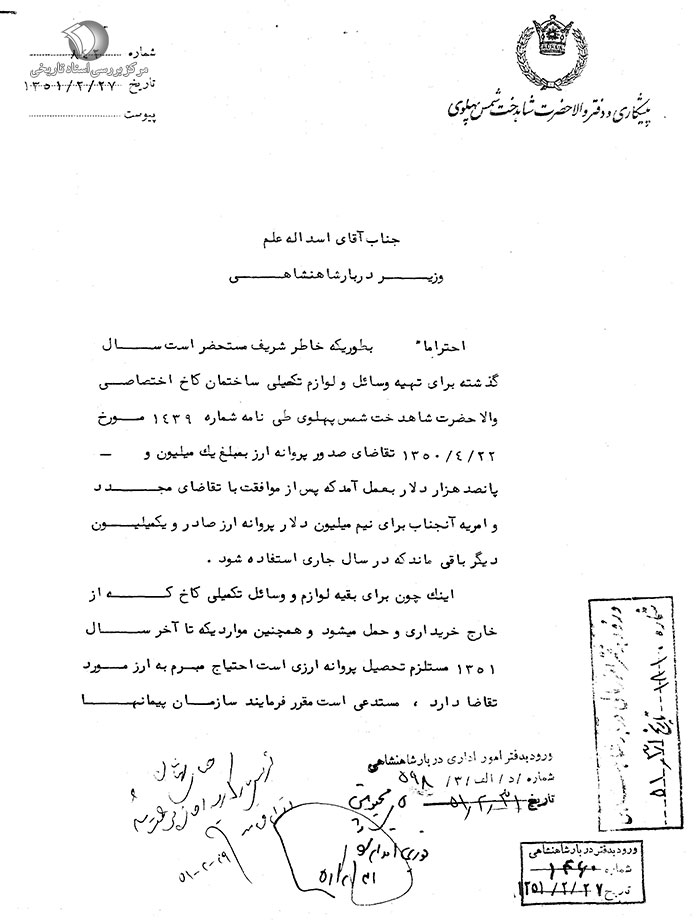 شماره
مرکز بررسی اسناد تاریخی
تاریخ ۱۳۵۱/۲/۲۷
پیوست
پیشکاری و دفتر والاحضرت شاهدخت شمس پهلوی
جناب آقای اسداله علم
وزیر دربار شاهنشاهی
احتراما" بطوریکه خاطر شریف مستحضر است سال
گذشته برای تهیه وسائل و لوازم تکمیلی ساختمان کاخ اختصاصی
والا حضرت شاهدخت شمس پهلوی طی نامه شماره ۱۴۳۹ مورخ
۱۳۵۰/۴/۲۲ تقاضای صدور پروانه ارز بمبلغ یك میلیون و _
پانصد هزار دلار بعمل آمد که پس از موافقت با تقاضای مجدد
و امریه آنجناب برای نیم میلیون دلار پروانه ارز صادر و یکمیلیون
دیگر باقی ماند که در سال جاری استفاده شود .
اینك چون برای بقیه لوازم و وسائل تکمیلی کاخ که از
خارج خریداری و حمل میشود و همچنین مواردیکه تا آخر سال
۱۳۵۱ مستلزم تحصیل پروانه ارزی است احتیاج مبرم به ارز مورد
تقاضا دارد ، مستدعی است مقرر فرمایند سازمان پیمانها
ورود بدفتر امور اداری دربار شاهنشاهی
شماره /د/ الف /۳/ ۵۹۸
تاریخ ۵۱/۲/۳۱
۵۱-۲-۲۹
ورود بدفتر دربار شاهنشاهی
شماره ۱۴۶۰
تاریخ ۱۳۵۱/۲/۲۷
شماره
تاریخ